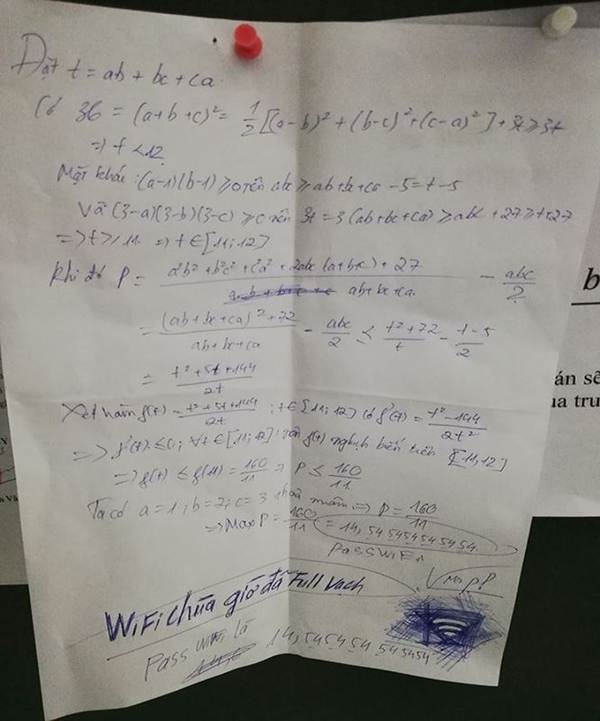 Đặt t = ab + bc + ca
Có 36 = (a+b+c)² = 1/2 [(a-b)² + (b-c)² + (c-a)²] + 3t ≥ 3t
=> t ≤ 12
Mặt khác: (a-1)(b-1) ≥ 0 nên abc ≥ ab+bc+ca - 5 = t-5
Và (3-a)(3-b)(3-c) ≥ 0 nên 3t = 3(ab+bc+ca) ≥ abc + 27 ≥ t+27
=> t ≥ 11 => t ∈ [11;12]
Khi đó P = (a²b² + b²c² + c²a² + 2abc(a+b+c) + 27)/(ab+bc+ca) - abc/2
= ((ab+bc+ca)² + 72)/(ab+bc+ca) - abc/2 ≤ (t²+72)/t - (t-5)/2
= (t² + 5t + 144)/2t
Xét hàm f(t) = (t² + 5t + 144)/2t ; t ∈ [11;12] có f'(t) = (t² - 144)/2t²
=> f'(t) ≤ 0; ∀t ∈ [11;12] nên f(t) nghịch biến trên [11,12]
=> f(t) ≤ f(11) = 160/11 => P ≤ 160/11
Ta có a=1; b=2; c=3 thoả mãn => P = 160/11
=> Max P = 160/11 = 14,545454545454
PASS WIFI
WiFi chùa giờ đã Full Vạch
Pass Wifi là 14,545454545454
án sẽ
ua tru
b